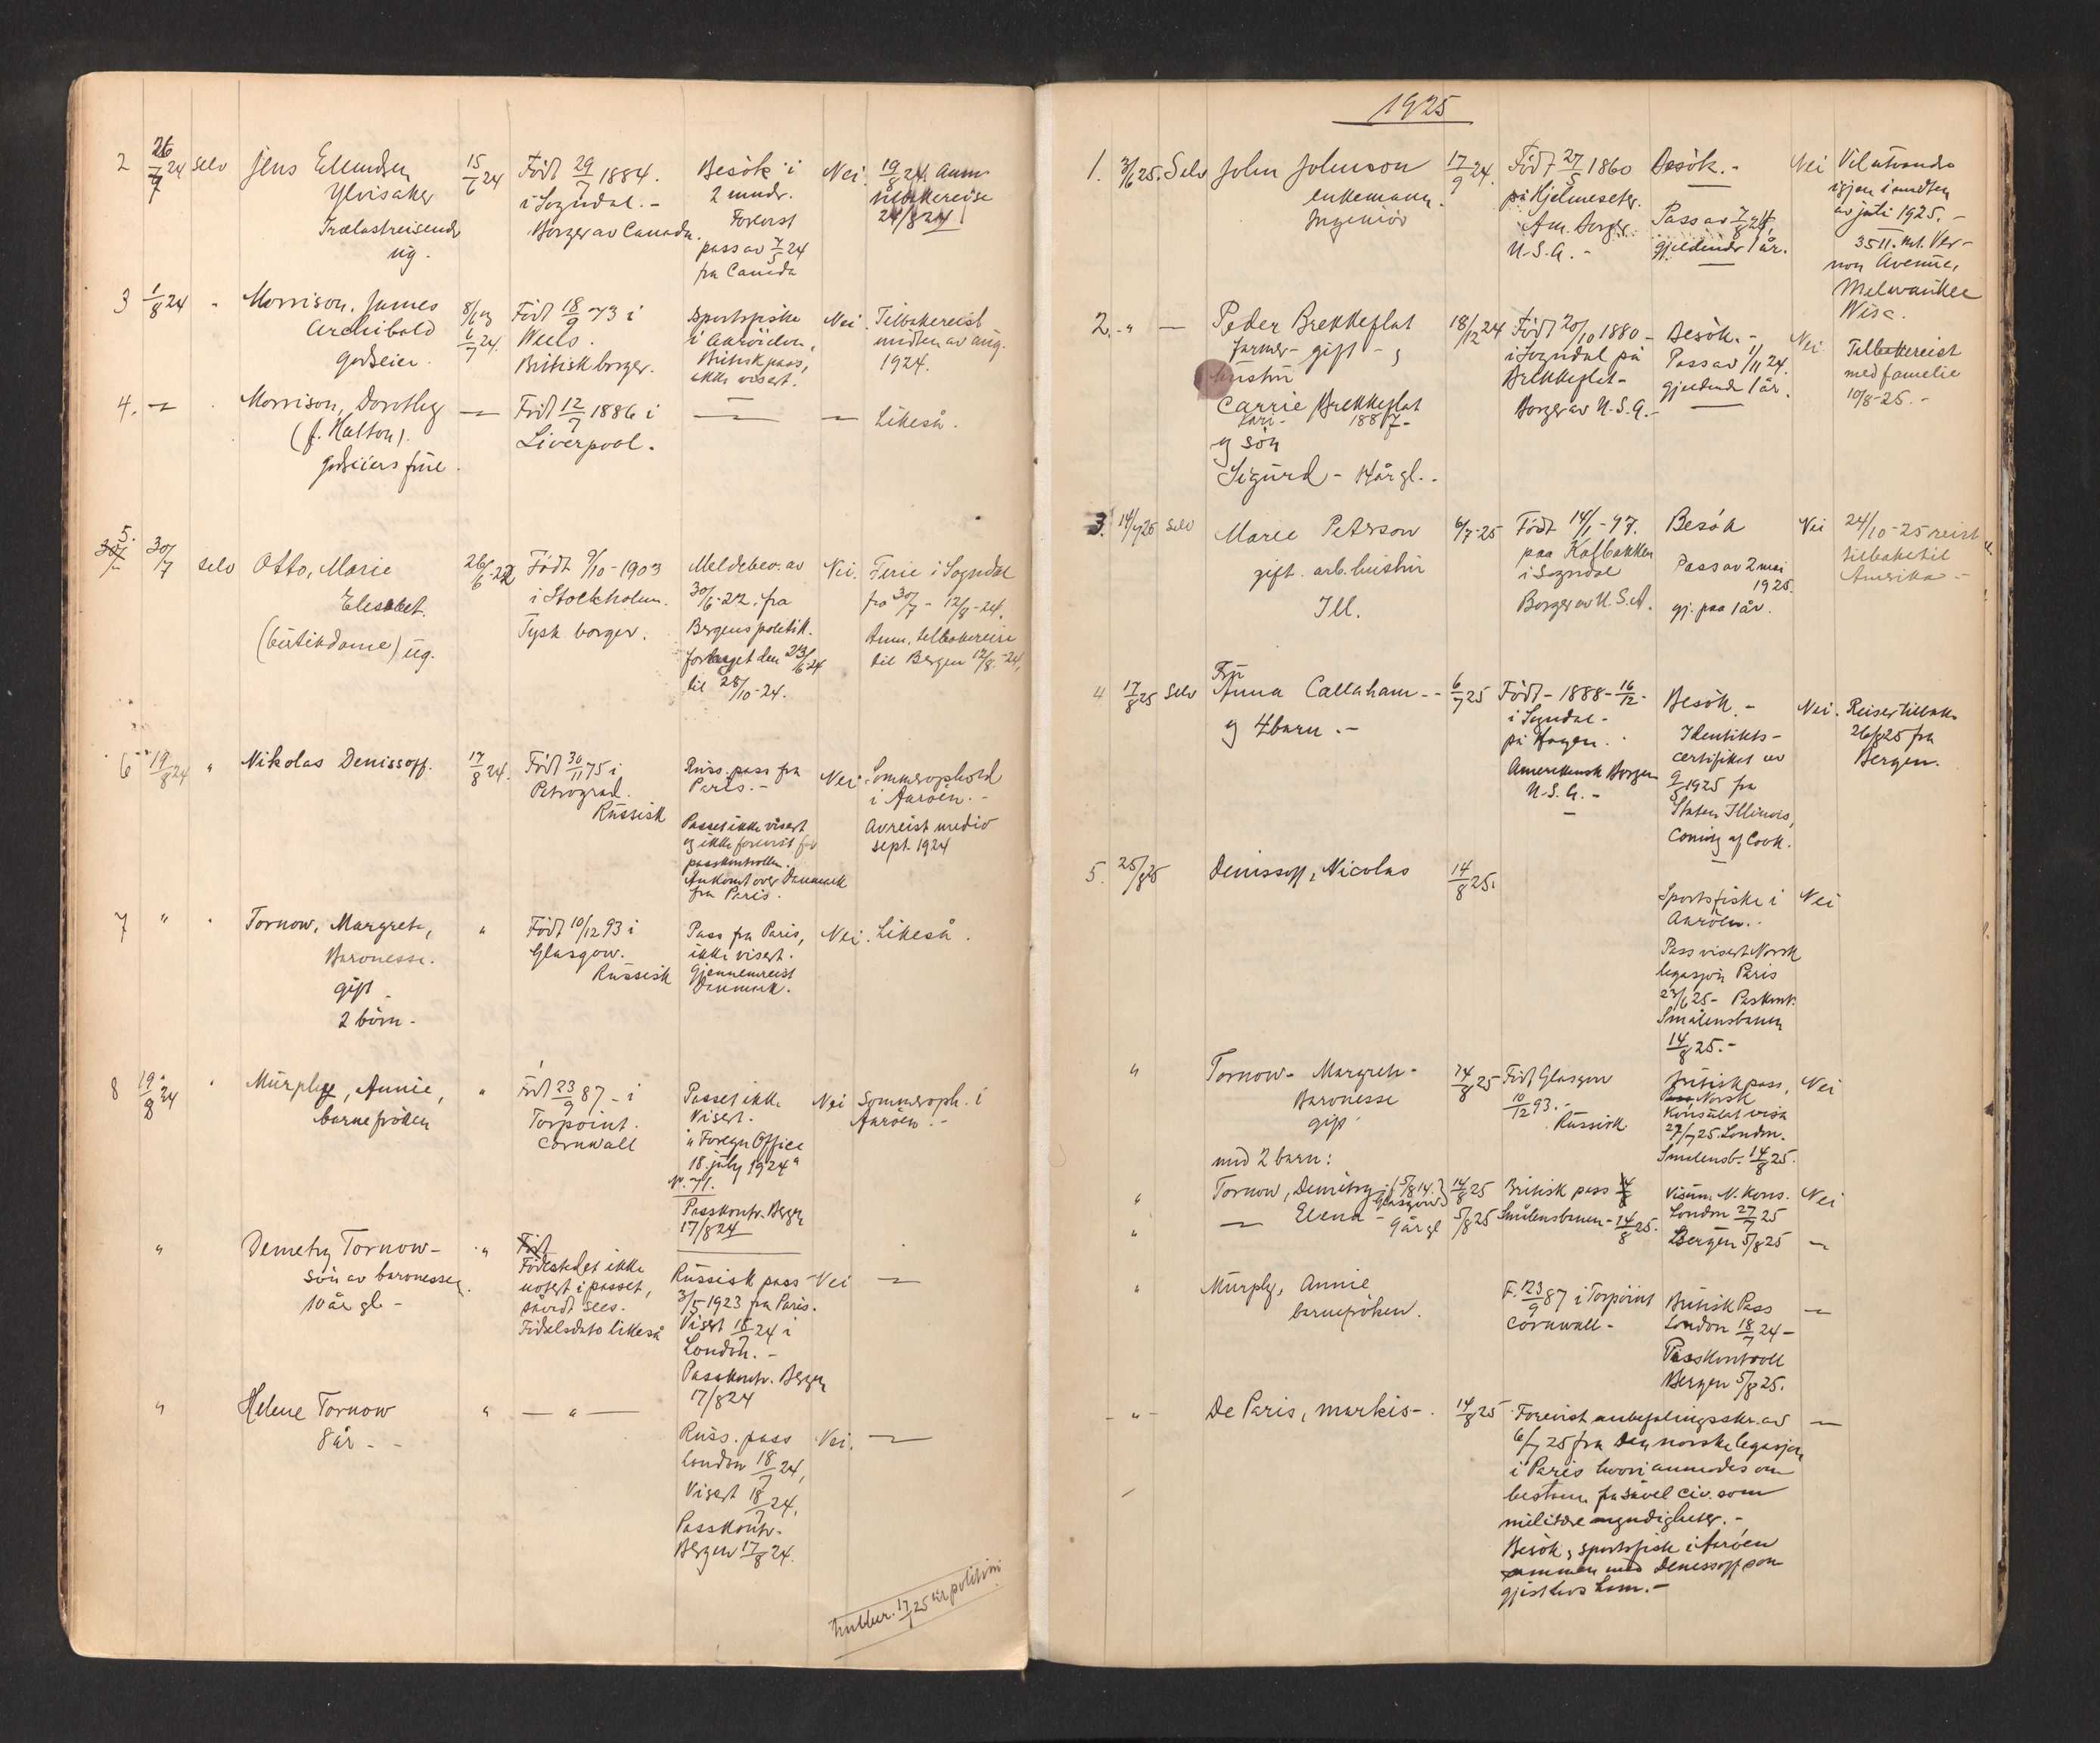 2 26/7 24 selv Jens Ellendsen 15/6 24 Födt 29/7 1884. Besök i Nei. 19/8 24. Anm.
Ylvisaker i Sogndal.- 2 mndr. tilbakereise
Trælastreisende Borger av Canada. Forevist 24/8 24
ug. pass av 7/5 24
fra Canada
3 1/8 24 " Morrison, James 8/6 og Födt 18/9 73 i Sportsfiske Nei. Tilbakereist
Archibald 6/7 24. Wells. i Aaröielven, midten av aug.
godseier. Britisk borger. Britisk pass, 1924.
ikke visert.
4. — " Morrison, Dorothy — Födt 12/7 1886 i — — Likeså.
(f. Halton). Liverpool.
godseiers frue.
5.
30/7 30/7 selv Otto, Marie 26/6-22 Födt 9/10-1903 Meldebev. av Nei. Ferie i Sogndal
Elesabet. i Stockholm. 30/6-22. fra fra 30/7 - 12/8-24.
(butikdame) ug. Tysk borger. Bergens politik. Anm. tilbakereise
forlenget den 23/6-24 til Bergen 12/8-24,
til 28/10-24.
6 19/8 24 " Nikolas Denissoff. 17/8 24. Födt 30/11 75 i Russ. pass fra Nei. Sommerophold
Petrograd. Paris.- i Aaröen.-
Russisk Passet ikke visert Avreist medio
og ikke forevist for sept. 1924
passkontrollen.
Ankomst over Danmark
fra Paris.
7 " " Tornow, Margrete, " Födt 10/12 93 i Pass fra Paris, Nei. Likeså.
Baronesse. Glasgow. ikke visert.
gift Russisk Gjennemreist
2 börn- Danmark.
8 19/8 24 " Murphy, Annie, " Födt 23/9 87 - i Passet ikke Nei Sommeroph. i
barnefröken Torpoint. Visert. Aaröen.-
Cornwall "Foreign Office
18. july 1924"
No. 71.
Passkontr. Bergen
17/8 24
" Demetry Tornow- " Födt
Födestedet ikke Russisk pass Nei —
sön av baronessen. notert i passet, 3/5 1923 fra Paris.
10 år gl- såvidt sees. Visert 18/7 24 i
Födselsdato likeså London.-
Passkontr. Bergen
17/8 24
" Helene Tornow " — " — Russ. pass Nei. —
8 år - - London 18/7 24,
Visert 18/7 24.
Passkontr.
Bergen 17/8 24.
17/1 25
1925
1. 3/6 25. Selv John Johnson 17/9 24. Födt 27/5 1860 Besök.- Nei Vil utvandre
enkemann. på Hjelmeseter. igjen i midten
Ingeniör Am. borger Pass av 7/8 24, av juli 1925.-
U.S.A.- gjeldende 1 år. 3511. Mt. Ver-
non Avenue,
Milwaukee
Wisc.
2. " — Peder Brekkeflat 18/12 24 Födt 20/10 1880- Besök.- Nei. Tilbakereist
farmer- gift - og i Sogndal på Pass av 1/11 24. med familie
hustru Brekkeflat- gjeldende 1 år. 10/8-25.-
Carrie Brekkeflat Borger av U.S.A.-
Kari- 1887-
og sön
Sigurd- 14 år gl..
3. 14/7 25 selv Marie Peterson 6/7-25 Födt 14/1-97. Besök Nei 24/10-25 reist
gift. arb. hustru paa Kalbakken Pass av 2 mai tilbake til
Ill. i Sogndal 1925. Amerika-
Borger av U.S.A. gj. paa 1 år.
Fru
4 17/8 25 selv Anna Callaham-- 6/7 25 Födt-1888-16/12- Besök.- Nei. Reiser tilbake
og 4 barn.- i Sogndal- Identitets- 26/8 25 fra
på Hagen. certifikat av Bergen.
Amerikansk Borger 9/5 1925 fra
U.S.A.- Staten Illinois,
County of Cook.
5. 25/8 25 Denissoff, Nicolas 14/8 25.
Sportsfiske i Nei
Aaröen..
Pass visert Norsk
legasjon Paris
23/6 25- Passkont.
Smålensbanen
14/8 25.-
" Tornow- Margrete- 14/8 25 Födt Glasgow Britisk pass, Nei
Baronesse 10/12 93.- Norsk
gift Russisk. Konsulat visa
27/7 25. London.
med 2 barn: Smålensb. 14/8 25.
" Tornow, Demitry- (5/8 14. Glasgow) 14/8 25 Britisk pass 14/8 Visum N. Kons. Nei
" — Elena - 9 år gl 5/8 25 Smålensbanen- 14/8 25. London 27/7 25
Bergen 5/8 25 —
" Murphy, Annie F. 23/9 87 i Torpoint Britisk Pass —
barnefröken. Cornwall- London 18/7 24-
Passkontroll
Bergen 5/8 25.
- " - De Paris, markis-. 14/8 25 Forevist anbefalingsskr. av —
6/7 25 fra Den norske legasjon
i Paris hvori anmodes om
bistann fra såvel civ. som
militære myndigheter.-
Besök, sportsfiske i Aaröen
sammen med Denissoff som
gjest hos ham.-